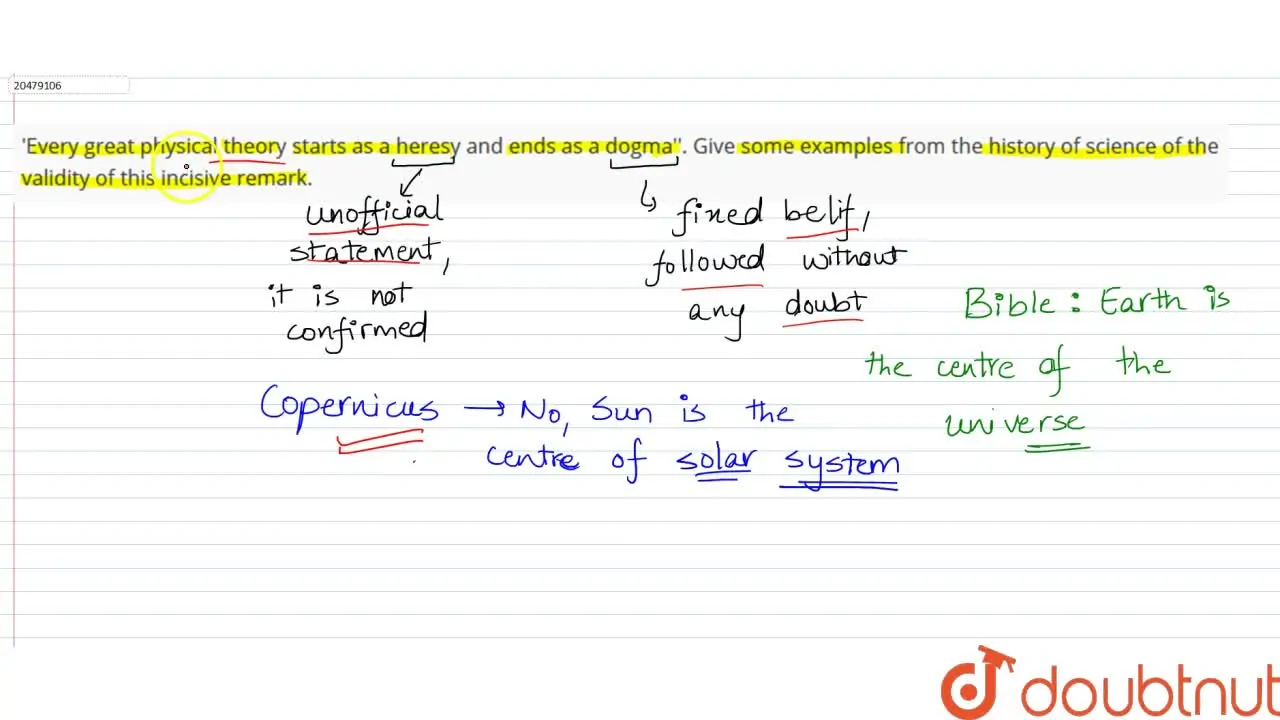 20479106
'Every great physical theory starts as a heresy and ends as a dogma''. Give some examples from the history of science of the
validity of this incisive remark.
unofficial
statement,
it is not
confirmed
fixed belif,
followed without
any doubt
Bible : Earth is
the centre of the
universe
Copernicus → No, Sun is the
centre of solar system
doubtnut